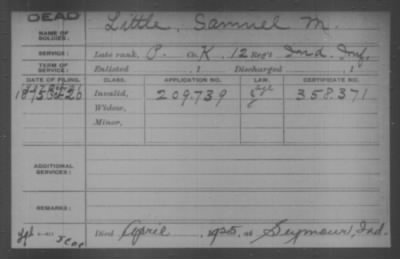 DEAD
NAME OF SOLDIER: Little, Samuel M.
SERVICE: Late rank, P. Co. K, 12 Reg't Ind. Inf.
TERM OF SERVICE: Enlisted , 1 Discharged , 1
DATE OF FILING. CLASS. APPLICATION NO. LAW. CERTIFICATE NO.
Invalid, 209.739 358.371
Widow,
Minor,
ADDITIONAL SERVICES:
REMARKS:
Died April , at Seymour, Ind.